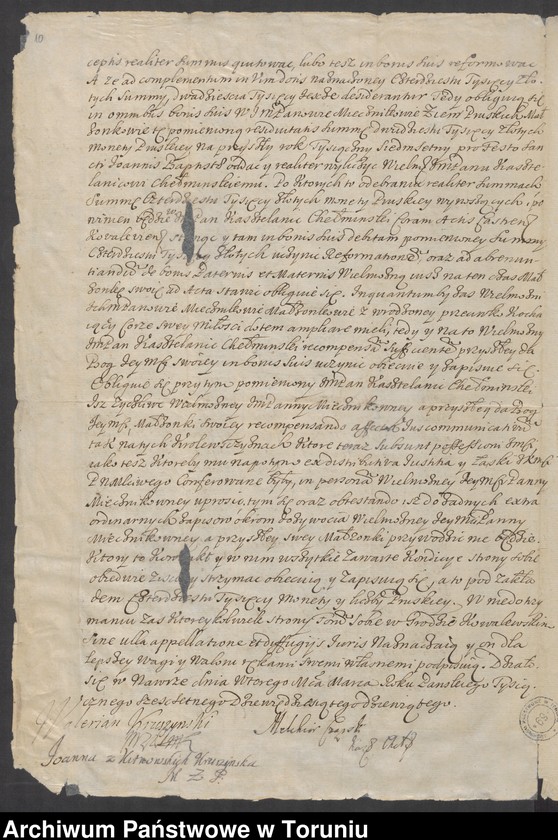 10
ceptis realiter summis quitować, lubo tesz in bonis suis reformować
A że ad complementum in vim dotis naznaczoney Czterdziestu Tysięcy Zło-
tych Summy, Dwadziescia Tysięcy ieszcze desiderantur Tedy obliguią się
in omnibus bonis suis Ich Mć Panowie Miecznikowie Ziem Pruskich Mał
żonkowie tę pomienioną residuitatis Summę Dwudziestu Tysięcy Złotych
monety Pruskiey na przyszły rok Tysiączny Siedmsetny pro Festo San
cti Joannis Baptistæ oddać y realiter wyliczyć Wielmu Jmć Panu Kaszte
lanicowi Chełminskiemu. Po ktorych to odebraniu realiter Summach
Summę Czterdziestu Tysięcy Złotych monety Pruskiey wynoszących, po
winien będzie Jmć Pan Kasztelanic Chełminski Coram Actis Castren
Kovalevien y tam in bonis suis debitam pomienioney Summy
Czterdziestu Tysięcy Złotych uczynić Reformationem, oraz ad abrenun
tiandum de bonis Paternis et Maternis Wielmożną iusz na ten czas Mał
żonkę swoię ad Acta stawić obliguie się. Inquantumby zas Wielmożni
Ich Mć Panowie Miecznikowie Małżonkowie z wrodzoney przeciwko Kocha
iący Corze swey Miłości dotem ampliare mieli, tedy y na to Wielmożny
Jmć Pan Kasztelanic Chełminski recompensę sufficientem przyszłey da
Bog Jey Mci swoiey in bonis suis uczynić obiecuie y zapisuie się.
Obliguie się przy tym pomieniony Jmć Pan Kasztelanic Chełminski
Isz życzliwe Wielmożney Jmć Panny Miecznikowney a przyszłey da Bog
Jey Mci Małżonki swoiey recompensando affectum Ius communicativum
tak na tych Krolewszczyznach ktore teraz subsunt possessioni Jmci
iako tesz ktoreby mu napotym ex distributiva Iustitia y Łaski J K Mci
P n Młciwego Conferowane były, in personam Wielmożney Jey Mci Panny
Miecznikowney uprosić, tym się oraz obiestando isz do żadnych extra
ordinarnych zapisow okrom Dożywocia Wielmożney Jey Mć Panny
Miecznikowney a przyszłey swey Małżonki przywodzić nie będzie
Ktory to Kontrakt y w nim wszytkie zawarte Kondycye strony sobie
obiedwie ziścić y strzymać obiecuią y zapisuią się, a to pod zakła
dem Czterdziestu Tysięcy Monety y liczby Pruskiey. W niedotrzy
maniu zas ktoreykolwiek strony Forum sobie w Grodzie Kowalewskim
sine ulla appellatione et diffugijs Iuris naznaczaią y on dla
lepszey Wagi y Waloru rękami swemi własnemi podpisuią. Działo
się w Nawrze dnia Wtorego Mca Marca Roku Panskiego Tysią
cznego szescsetnego Dziewięcdziesiątego Dziewiątego.
Walerian Kruszynski
Joanna z Kruszynska
M Z P.
Melchior
Archiwum Państwowe w Toruniu